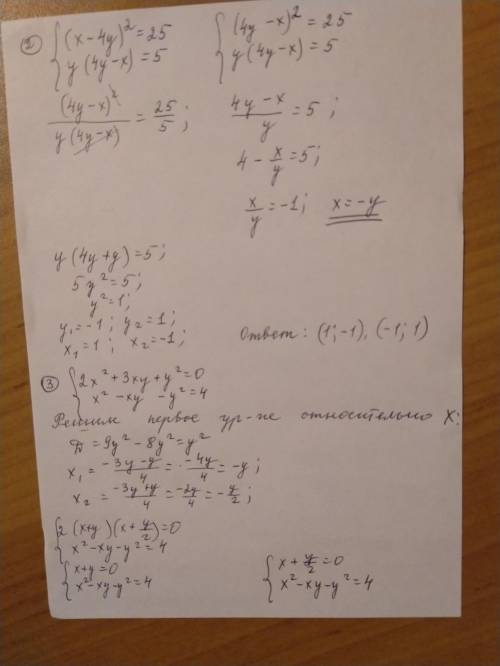 ② { (x-4y)² = 25        { (4y-x)² = 25
{ y(4y-x) = 5        { y(4y-x) = 5
(4y-x)² / y(4y-x) = 25/5;        (4y-x)/y = 5;
4 - x/y = 5;
x/y = -1;   x = -y
y(4y+y) = 5;
5y² = 5;
y² = 1;
y₁ = -1; y₂ = 1;
x₁ = 1; x₂ = -1;        Ответ: (1;-1), (-1;1)
③ { 2x² + 3xy + y² = 0
{ x² - xy - y² = 4
Решим первое ур-не относительно x:
D = 9y² - 8y² = y²
x₁ = (-3y-y)/4 = -4y/4 = -y;
x₂ = (-3y+y)/4 = -2y/4 = -y/2;
{ 2(x+y)(x+y/2) = 0
{ x² - xy - y² = 4
{ x+y = 0        { x + y/2 = 0
{ x² - xy - y² = 4        { x² - xy - y² = 4